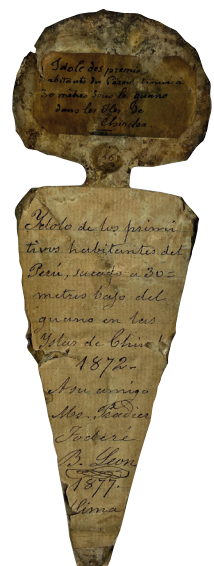 Idole des premiers
habitants du Pérou, trouvé a
30 mètres sous le guano
dans les Iles de
Chincha
Ydolo de los primi
tivos habitantes del
Perú, sacado a 30=
metros bajo del
guano en las
Yslas de Chinc
1872-
A su amigo
Mr.
B. Leon
1877.
Lima